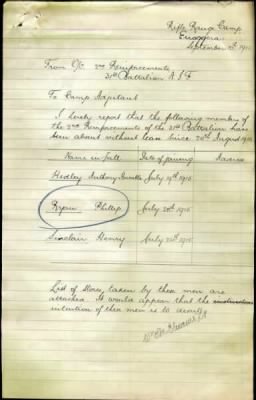 Rifle Range Camp
Enoggera
September 1915
From O/C 2nd Reinforcements
31st Battalion A I F
To Camp Adjutant
I hereby report that the following members of
the 2nd Reinforcements of the 31st Battalion have
been absent without leave since 28th August 1915
Name in full Date of joining
Hedley Anthony July 19th 1915
Ryan Phillip July 28th 1915
Sinclair Henry July 22nd 1915
List of Stores taken by these men are
attached. It would appear that the
intention of these men is to desert